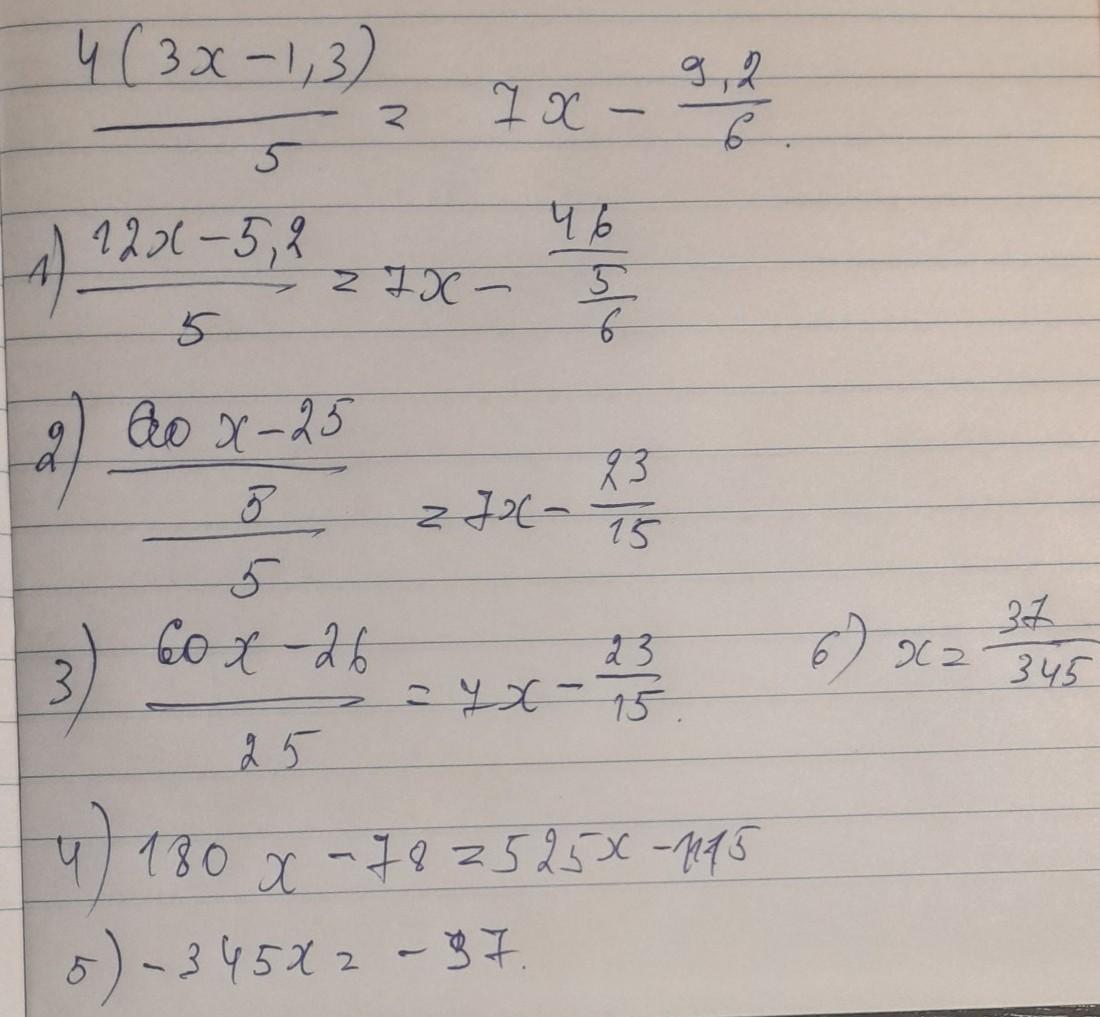 4(3x-1,3)/5 = 7x - 9,2/6.
1) (12x-5,2)/5 = 7x - (46/5)/6
2) ((60x-25)/5)/5 = 7x - 23/15
3) (60x-26)/25 = 7x - 23/15.
4) 180x-78=525x-115
5) -345x = -37.
6) x = 37/345